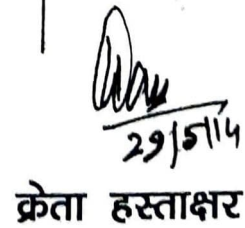 29/5/14
क्रेता हस्ताक्षर